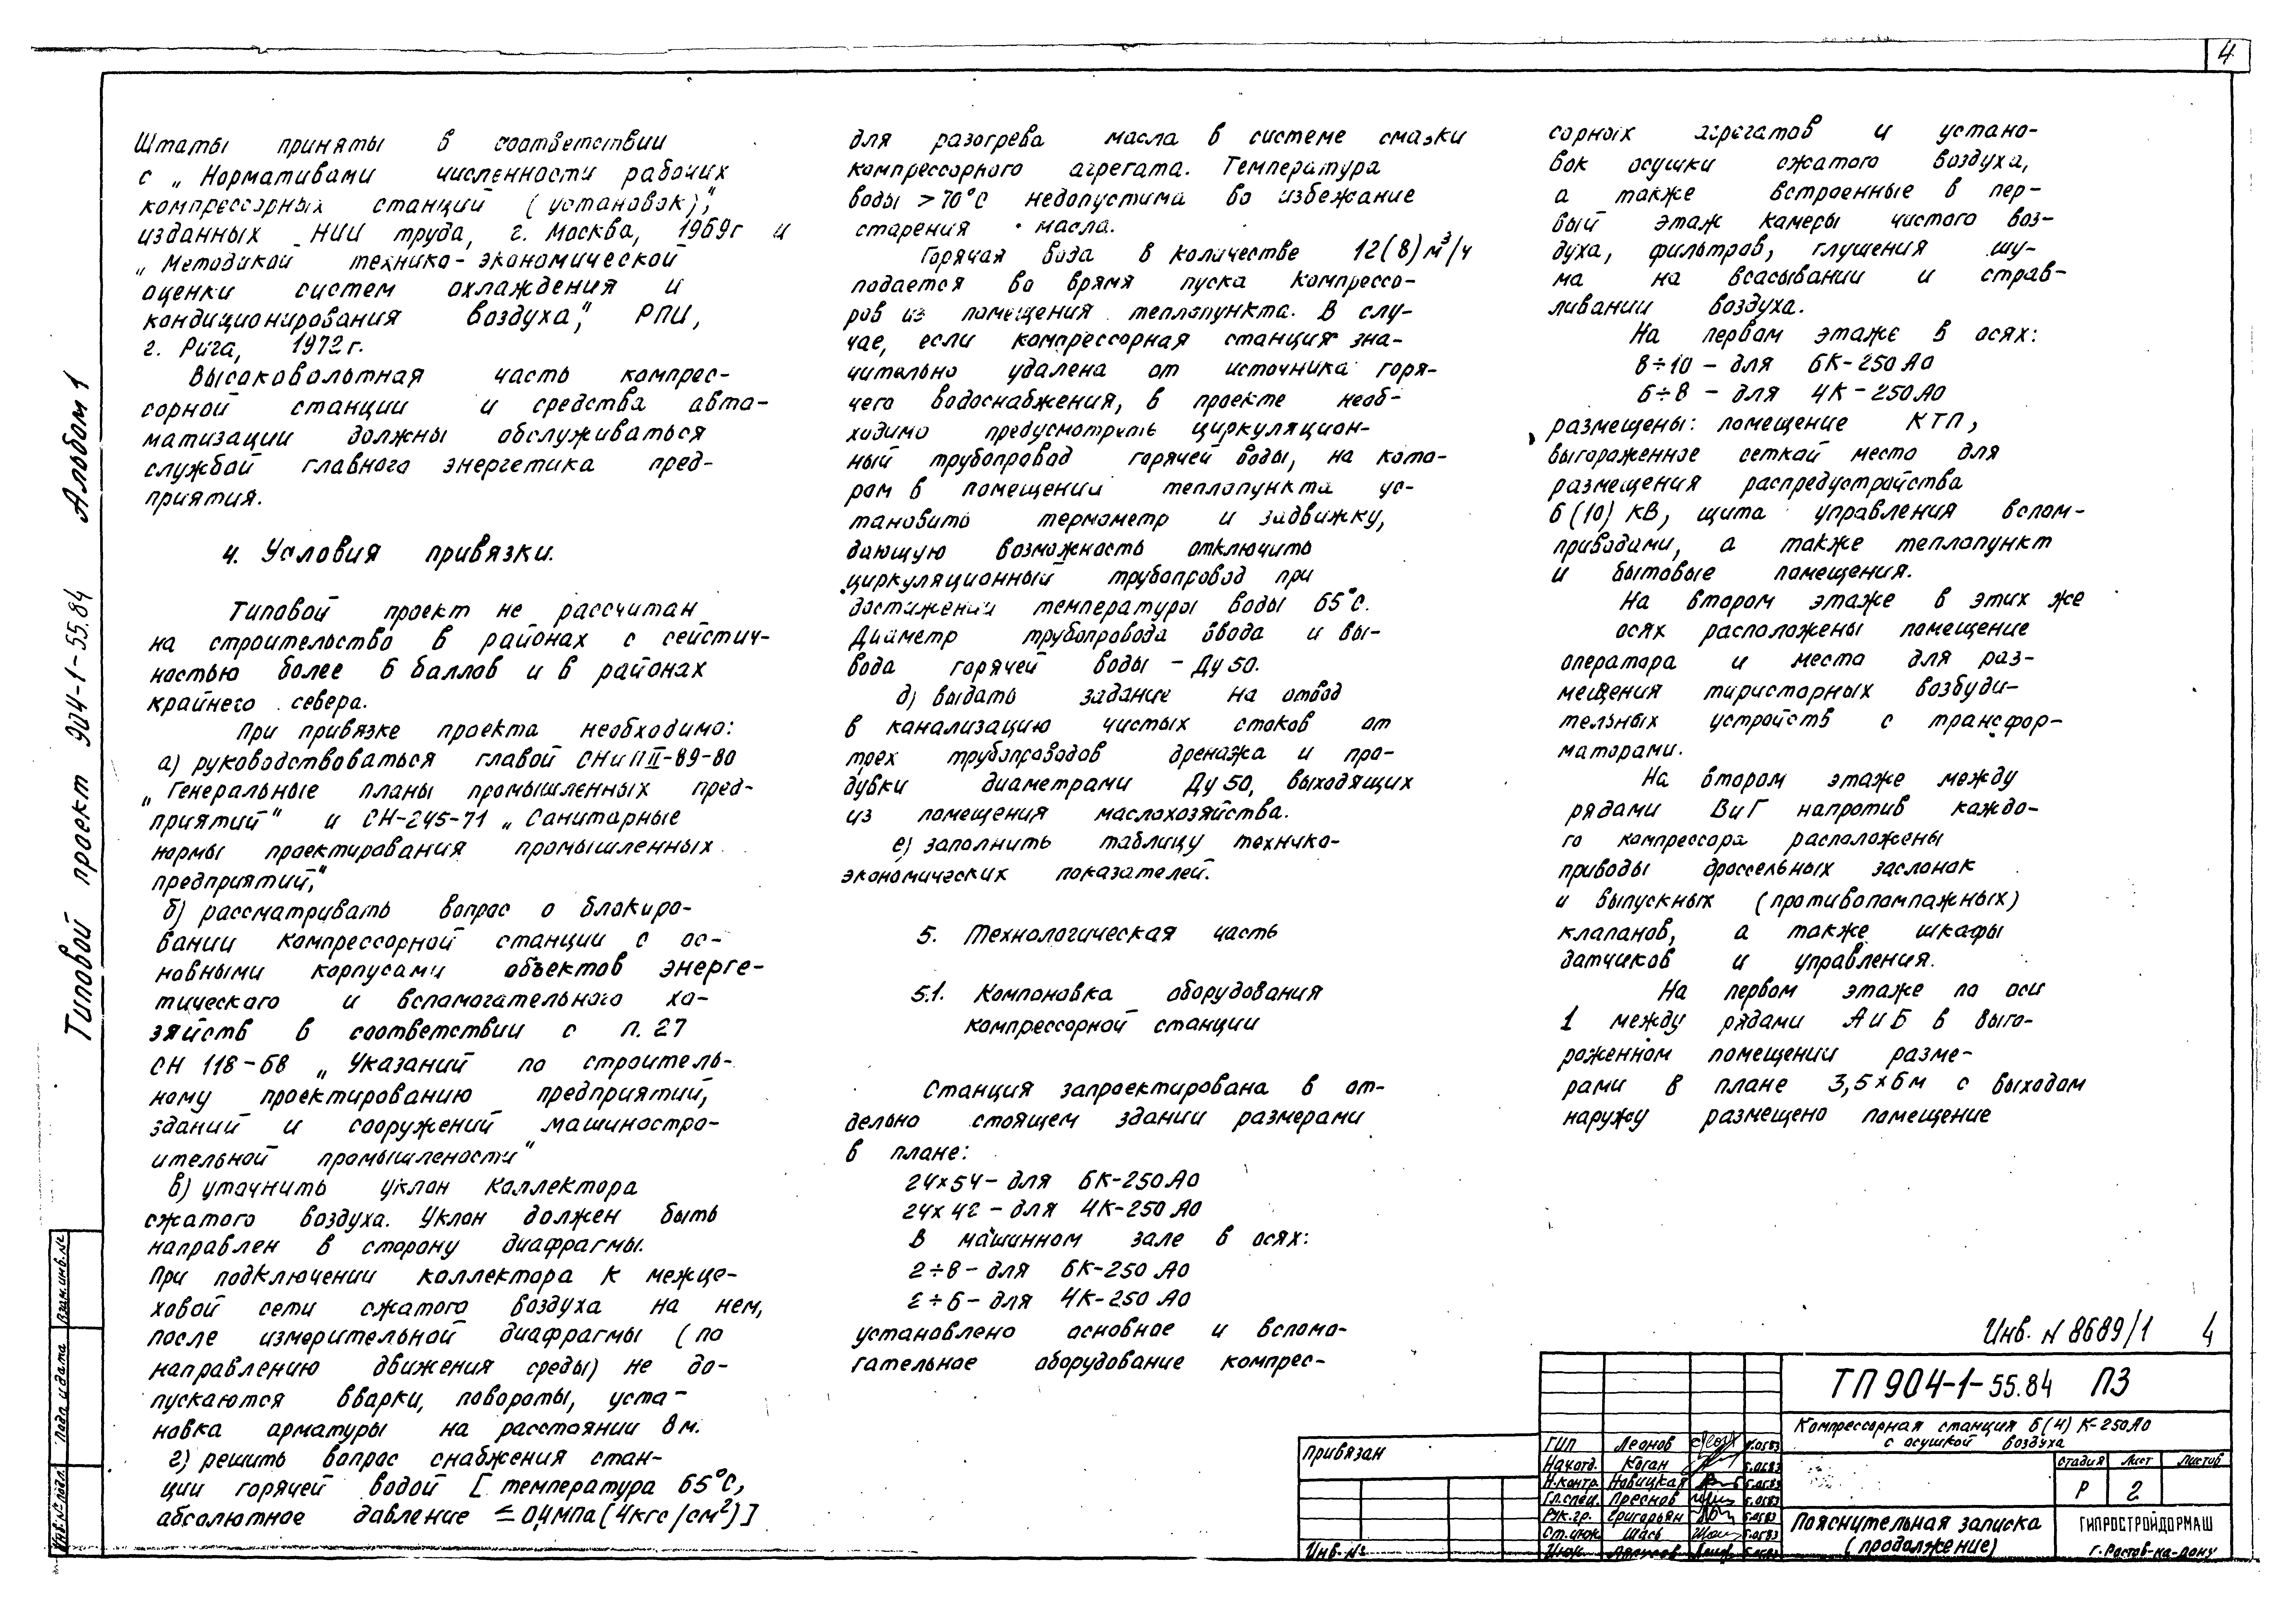 4
Штаты приняты в соответствии
с „Нормативами численности рабочих
компрессорных станций (установок)",
изданных НИИ труда, г. Москва, 1969г и
„Методикой технико-экономической
оценки систем охлаждения и
кондиционирования воздуха", РПИ,
г. Рига, 1972г.
Высоковольтная часть компрес-
сорной станции и средства авто-
матизации должны обслуживаться
службой главного энергетика пред-
приятия.
4. Условия привязки.
Типовой проект не рассчитан
на строительство в районах с сейсмич-
ностью более 6 баллов и в районах
крайнего севера.
При привязке проекта необходимо:
а) руководствоваться главой СНиП II-89-80
„Генеральные планы промышленных пред-
приятий" и СН-245-71 „Санитарные
нормы проектирования промышленных
предприятий",
б) рассматривать вопрос о блокиро-
вании компрессорной станции с ос-
новными корпусами объектов энерге-
тического и вспомогательного хо-
зяйств в соответствии с п. 27
СН 118-68 „Указаний по строитель-
ному проектированию предприятий,
зданий и сооружений машиностро-
ительной промышлености"
в) уточнить уклон коллектора
сжатого воздуха. Уклон должен быть
направлен в сторону диафрагмы.
При подключении коллектора к межце-
ховой сети сжатого воздуха на нем,
после измерительной диафрагмы (по
направлению движения среды) не до-
пускаются вварки, повороты, уста-
новка арматуры на расстоянии 8м.
г) решить вопрос снабжения стан-
ции горячей водой [температура 65°С,
абсолютное давление ≤ 0,4мпа (4кгс/см²)]
для разогрева масла в системе смазки
компрессорного агрегата. Температура
воды > 70°С недопустима во избежание
старения масла.
Горячая вода в количестве 12(8) м³/ч
подается во врямя пуска компрессо-
ров из помещения теплопункта. В слу-
чае, если компрессорная станция зна-
чительно удалена от источника горя-
чего водоснабжения, в проекте необ-
ходимо предусмотреть циркуляцион-
ный трубопровод горячей воды, на кото-
ром в помещении теплопункта ус-
тановить термометр и задвижку,
дающую возможность отключить
циркуляционный трубопровод при
достижении температуры воды 65°С.
Диаметр трубопровода ввода и вы-
вода горячей воды - Ду 50.
д) выдать задание на отвод
в канализацию чистых стоков от
трех трубопроводов дренажа и про-
дувки диаметрами Ду 50, выходящих
из помещения маслохозяйства.
е) заполнить таблицу технико-
экономических показателей.
5. Технологическая часть
5.1. Компоновка оборудования
компрессорной станции
Станция запроектирована в от-
дельно стоящем здании размерами
в плане:
24×54 - для 6К-250АО
24×42 - для 4К-250АО
В машинном зале в осях:
2÷8 - для 6К-250АО
2÷6 - для 4К-250АО
установлено основное и вспомо-
гательное оборудование компрес-
сорных агрегатов и устано-
вок осушки сжатого воздуха,
а также встроенные в пер-
вый этаж камеры чистого воз-
духа, фильтров, глушения шу-
ма на всасывании и страв-
ливании воздуха.
На первом этаже в осях:
8÷10 - для 6К-250АО
6÷8 - для 4К-250АО
размещены: помещение КТП,
выгораженное сеткой место для
размещения распредустройства
6(10) КВ, щита управления вспом-
приводами, а также теплопункт
и бытовые помещения.
На втором этаже в этих же
осях расположены помещение
оператора и место для раз-
мещения тиристорных возбуди-
тельных устройств с трансфор-
маторами.
На втором этаже между
рядами В и Г напротив каждо-
го компрессора расположены
приводы дроссельных заслонок
и выпускных (противопомпажных)
клапанов, а также шкафы
датчиков и управления.
На первом этаже по оси
1 между рядами А и Б в выго-
роженном помещении разме-
рами в плане 3,5×6м с выходом
наружу размещено помещение
Типовой проект 904-1-55.84 Альбом 1
Взам.инв.№
Подп. и дата
Инв.№ подл.
Инв. N 8689/1 4
ТП 904-1-55.84 ПЗ
Компрессорная станция 6(4) К-250АО
с осушкой воздуха
стадия Лист Листов
Р 2
Пояснительная записка
(продолжение)
ГИПРОСТРОЙДОРМАШ
г. Ростов-на-Дону
привязан
Инв. №
ГИП Леонов
Нач.отд. Коган
Н.контр. Новицкая
Гл.спец. Преснов
Рук.гр. Григорьян
Ст.инж. Шась
Инж.